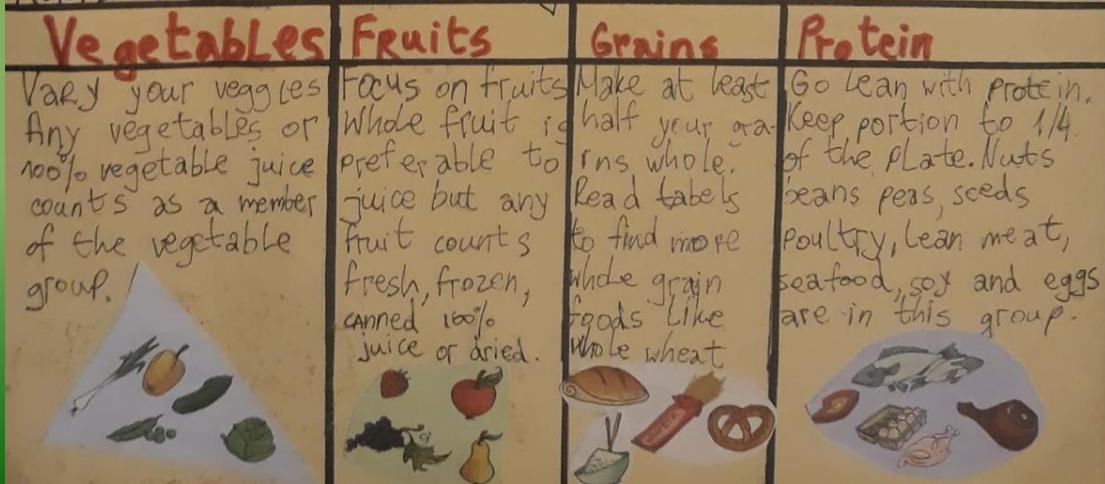 Vegetables
Vary your veggies
Any vegetables or
100% vegetable juice
counts as a member
of the vegetable
group.
Fruits
Focus on fruits
Whole fruit is
preferable to
juice but any
fruit counts
fresh, frozen,
canned 100%
juice or dried.
Grains
Make at least
half your gra-
ins whole.
Read labels
to find more
whole grain
foods like
whole wheat
Protein
Go lean with protein.
Keep portion to 1/4
of the plate. Nuts
beans peas, seeds
poultry, lean meat,
seafood, soy and eggs
are in this group.